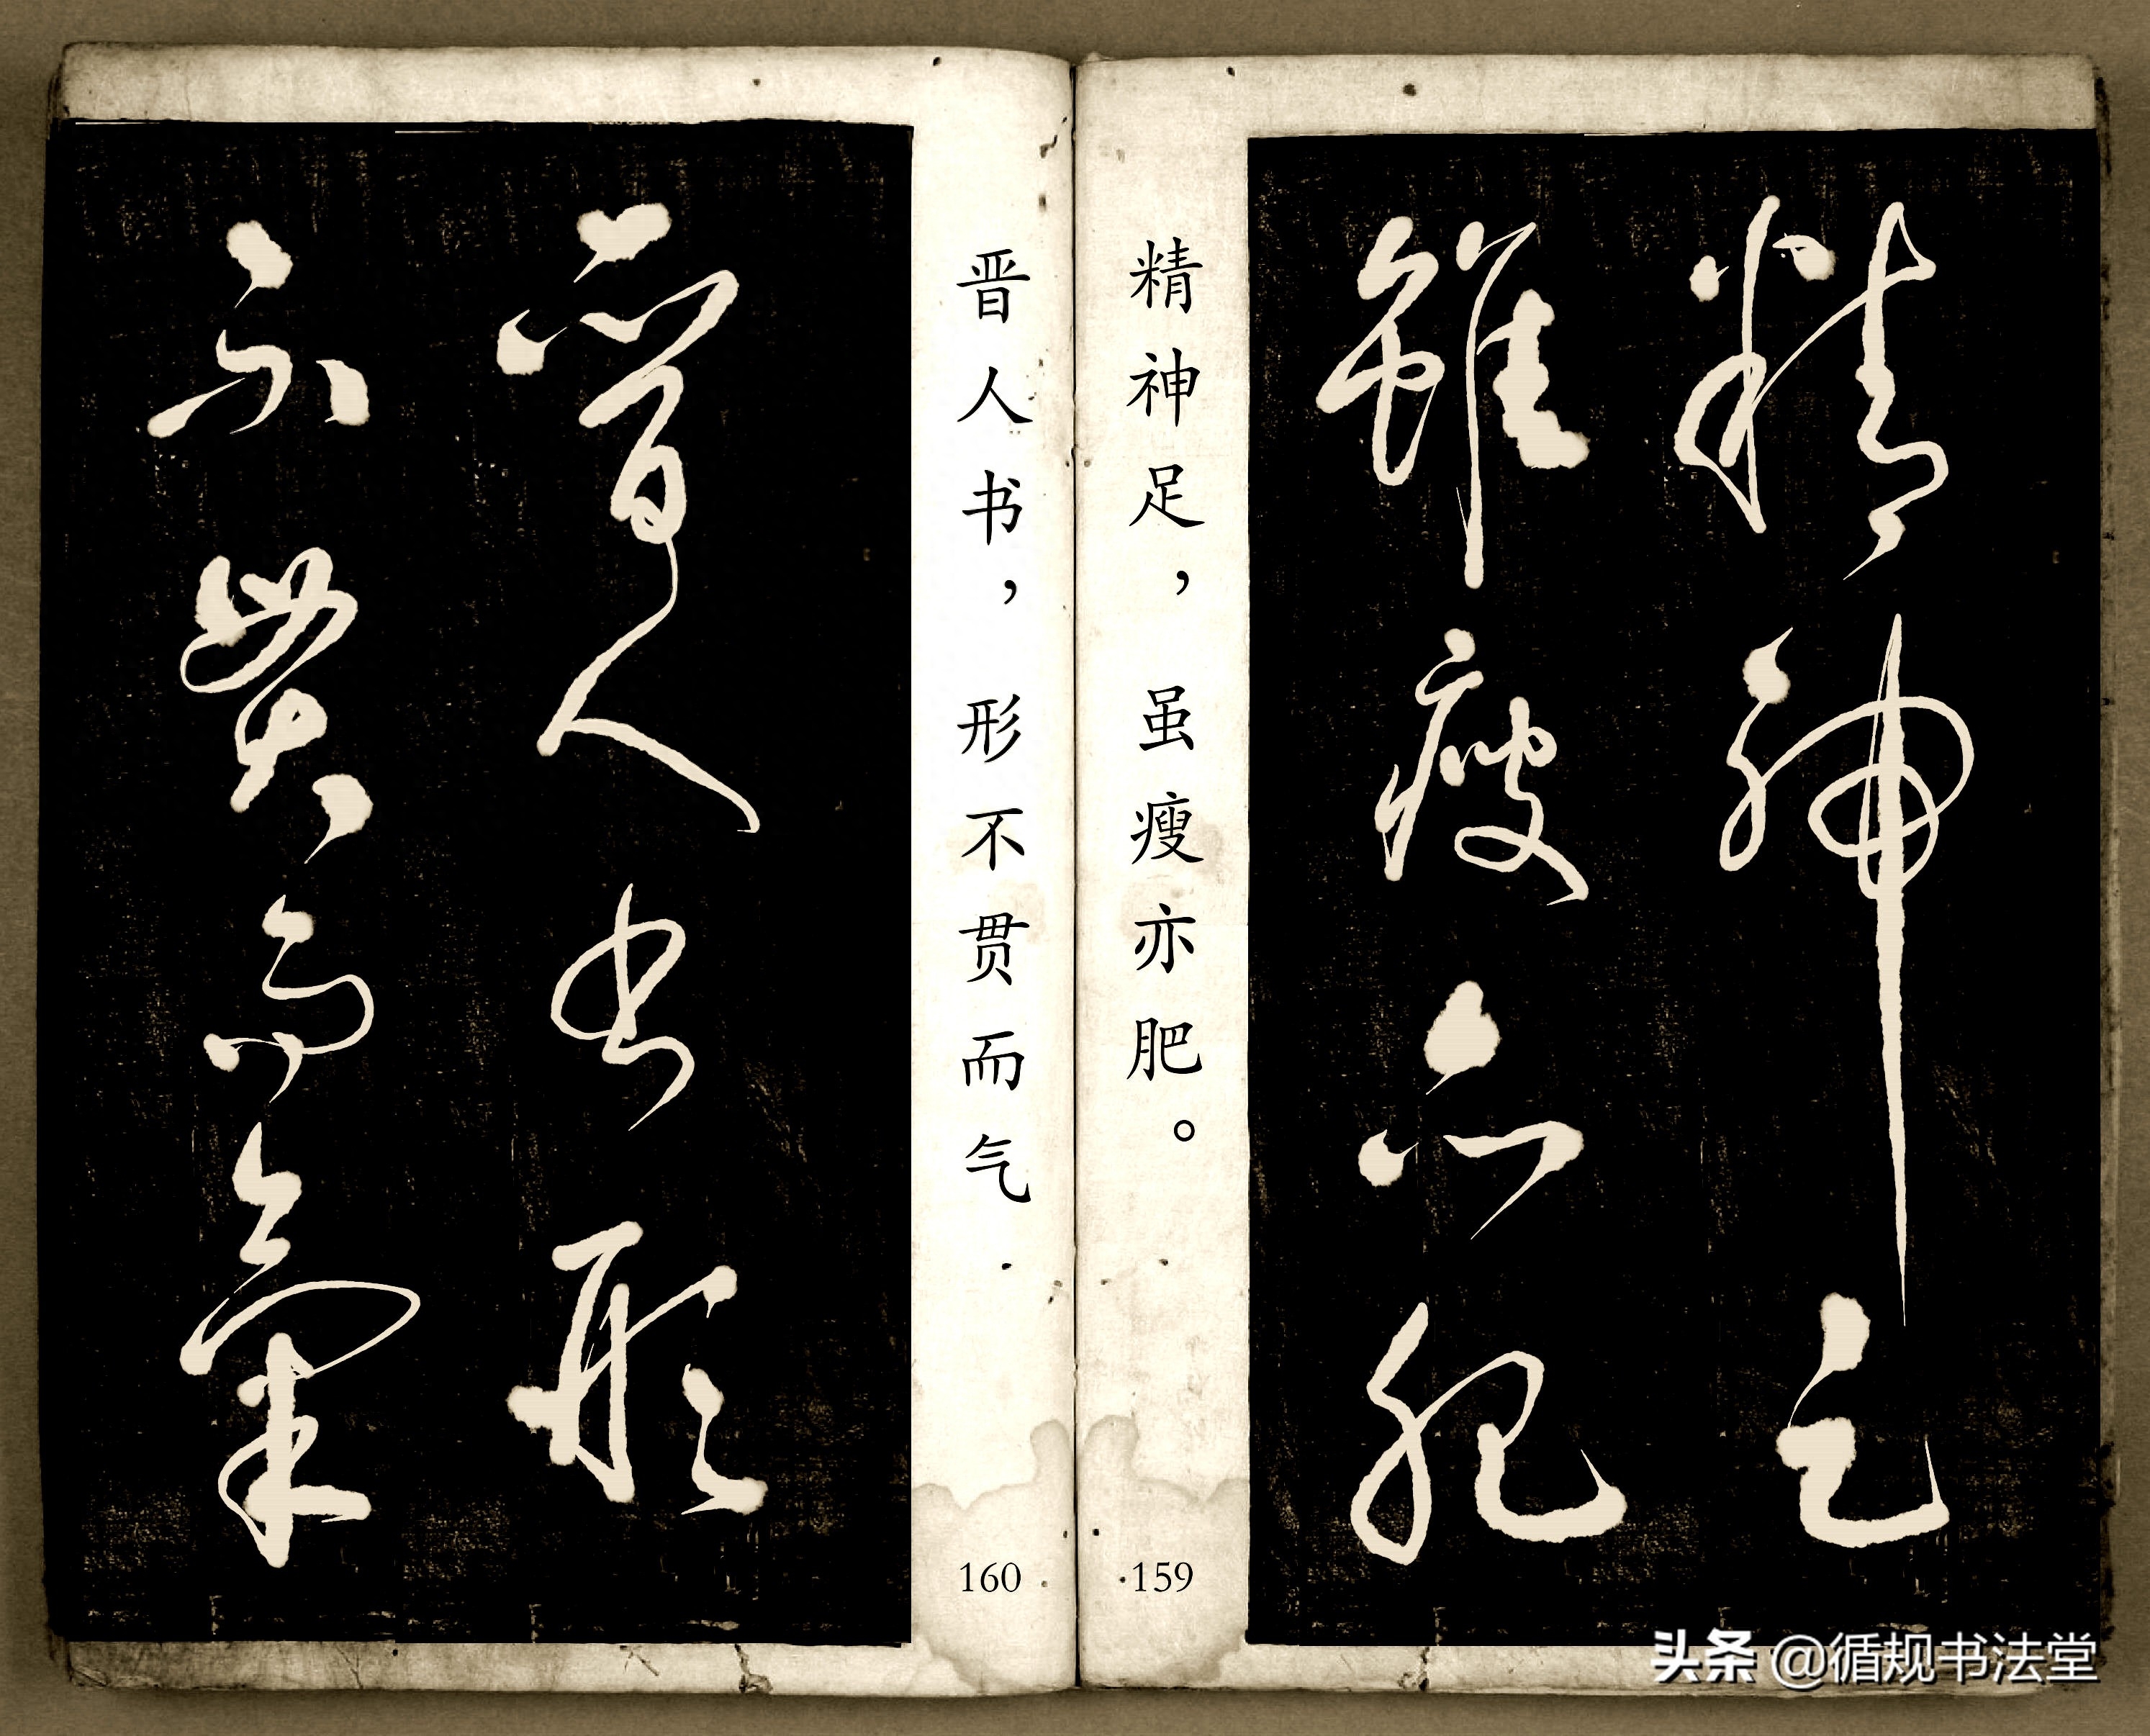 精神足
雖瘦亦肥
精神足，虽瘦亦肥。
159
晋人书，形不贯而气
160
晉人書形
不貫而氣
头条 @循规书法堂